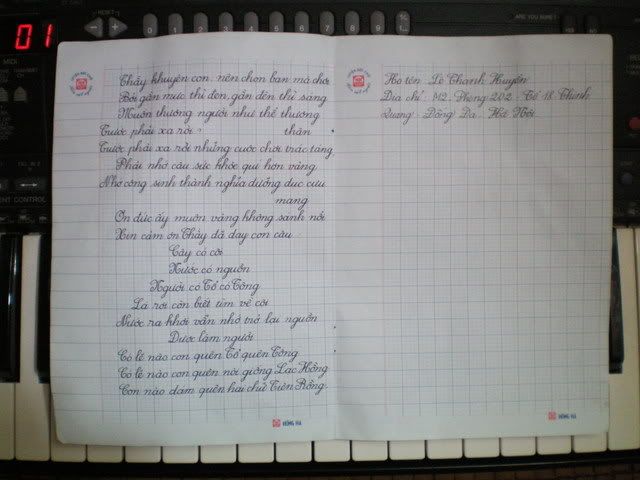 01
RESET
0 1 2 3 4 5 6 7 8 9
ARE YOU SURE?
NO
YES
MIDI
Thầy khuyên con, nên chọn bạn mà chơi
Bởi gần mực thì đen, gần đèn thì sáng
Muốn thương người như thể thương
thân
Trước phải xa rời
Trước phải xa rời những cuộc chơi trác táng
Phải nhớ câu sức khỏe quí hơn vàng
Nhớ công sinh thành nghĩa dưỡng dục cưu
mang
Ơn đức ấy muôn vàng không sánh nổi
Xin cảm ơn Thầy đã dạy con câu
Cây có cội
Nước có nguồn
Người có Tổ có Tông
Lá rơi còn biết tìm về cội
Nước ra khơi vẫn nhớ trở lại nguồn
Được làm người
Có lẽ nào con quên Tổ quên Tông
Có lẽ nào con quên nòi giống Lạc Hồng
Con nào dám quên hai chữ Tiên Rồng
HỒNG HÀ
Họ tên: Lê Thanh Huyền
Địa chỉ: M2. Phòng 202. Tổ 18 Thịnh
Quang - Đống Đa - Hà Nội
HỒNG HÀ